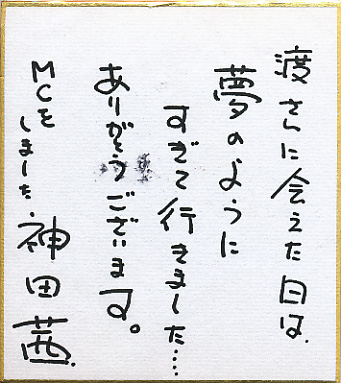 渡さんに会えた日は
夢のように
すぎて行きました……
ありがとうございます。
MCを
しました
神田茜